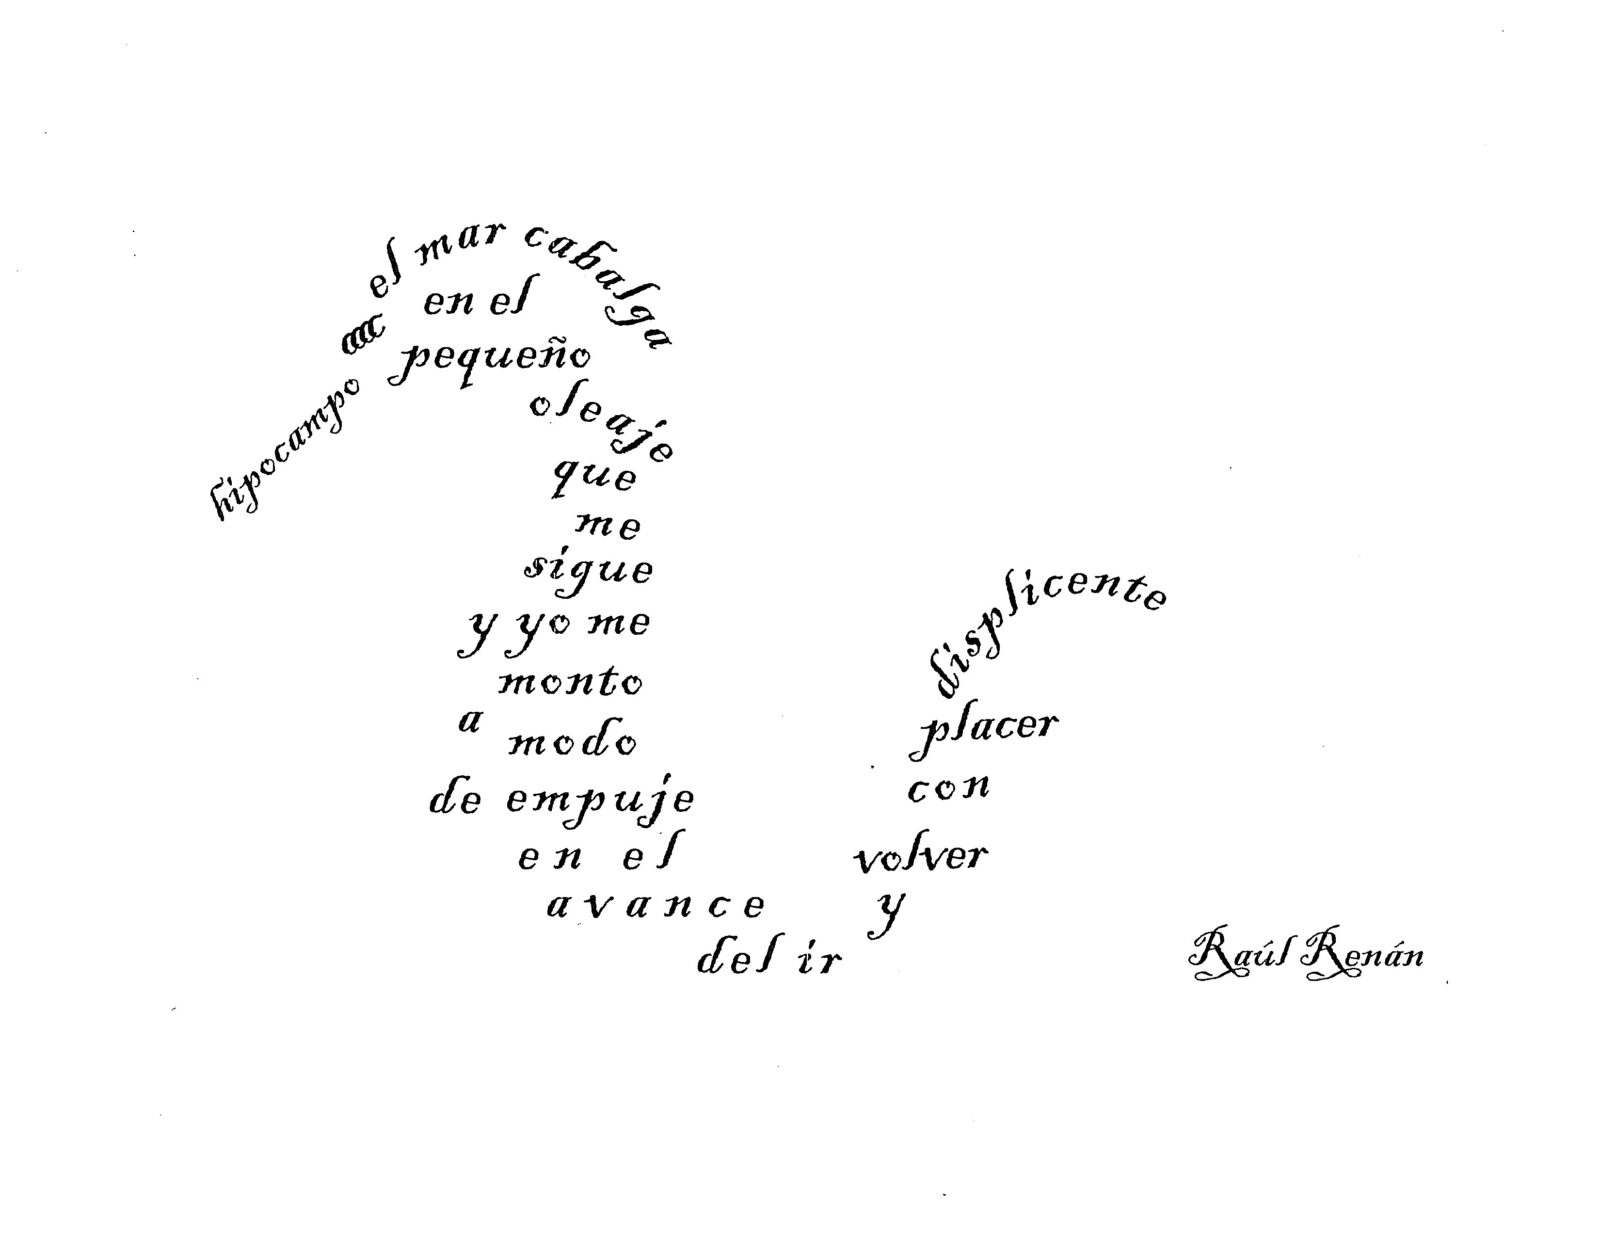 hipocampo
el mar cabalga
en el
pequeño
oleaje
que
me
sigue
y yo me
monto
a
modo
de empuje
en el
avance
del ir
y
volver
con
placer
displicente
Raúl Renán